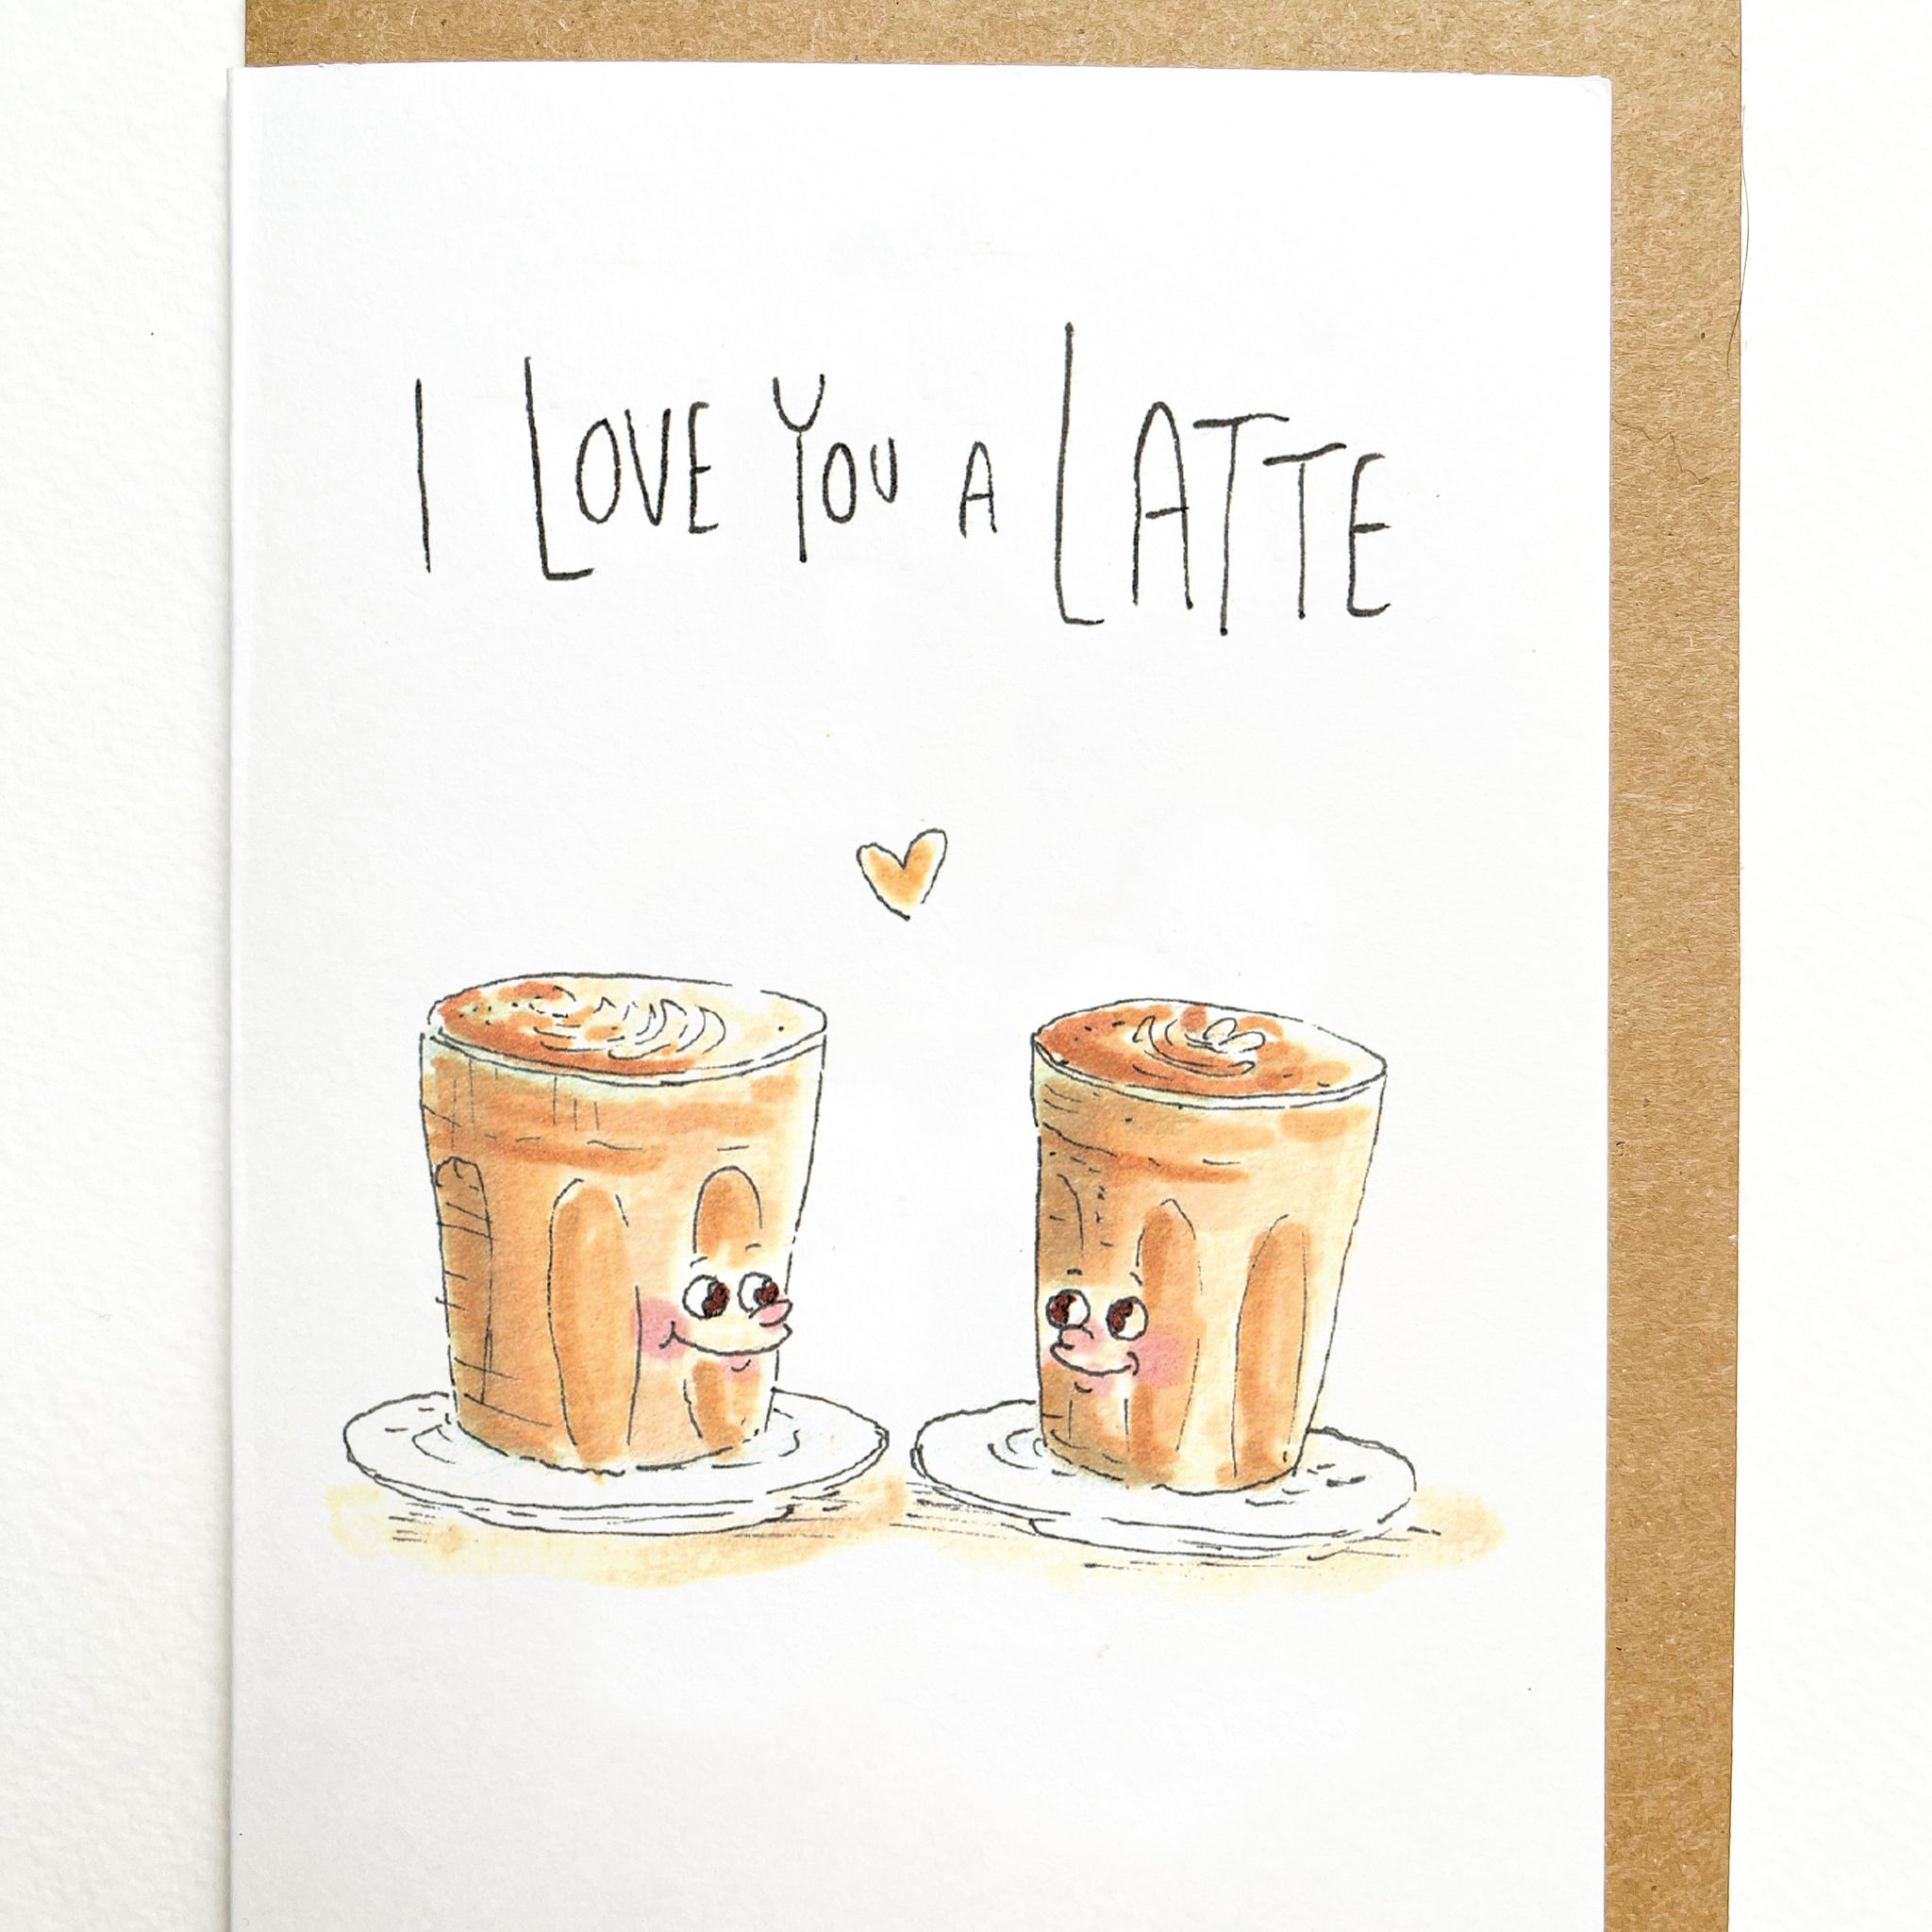 I LOVE YOU A LATTE